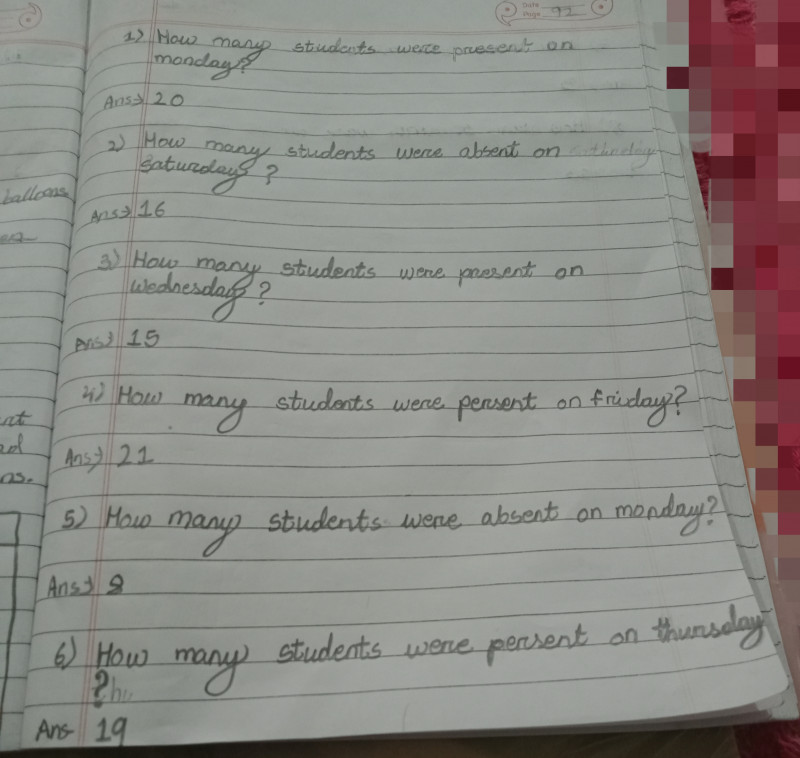 Date
Page 92
1) How many students were present on
monday?
Ans→ 20
2) How many students were absent on
Saturday?
balloons
Ans→ 16
3) How many students were present on
wednesday?
Ans→ 15
4) How many students were persent on friday?
Ans→ 21
5) How many students were absent on monday?
Ans→ 8
6) How many students were persent on thursday
?
Ans- 19